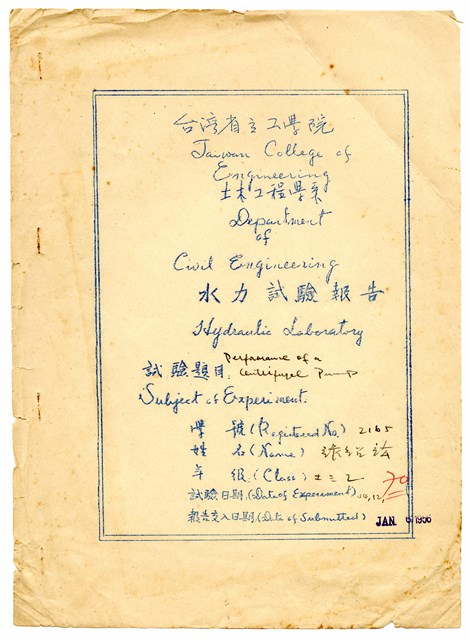 台湾省立工學院
Taiwan College of
Engineering
土木工程學系
Department
of
Civil Engineering
水力試驗報告
Hydraulic Laboratory
試驗題目: Performance of a
Centrifugal Pump
Subject of Experiment.
學 號 (Registered No.) 2165
姓 名 (Name) 張
年 級 (Class) 土三乙
試驗日期 (Date of Experiment) 70
報告交入日期 (Date of Submitted) JAN 6 1956